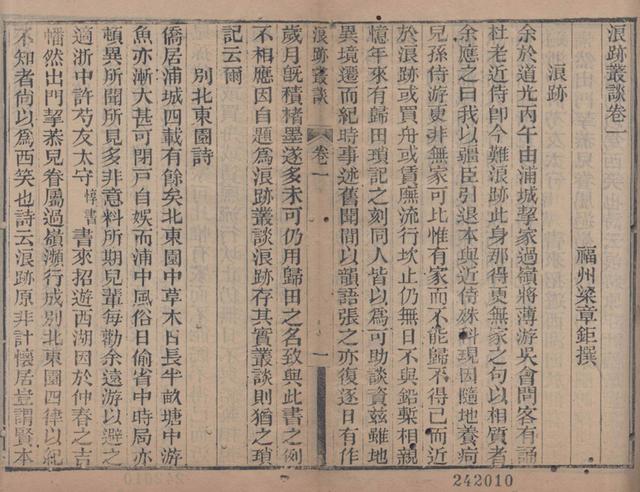 浪跡叢談卷一
福州梁章鉅撰
浪跡
余於道光丙午由浦城挈家過嶺將薄游吳會問客有誦
杜老近侍卽今難浪跡此身那得更無家之句以相質者
余應之曰我以疆臣引退本與近侍殊科現因隨地養疴
兒孫侍游更非無家可比惟有家而不能歸不得已而近
於浪跡或買舟或賃廡流行坎止仍無日不與鉛槧相親
憶年來有歸田瑣記之刻同人皆以爲可助談資茲雖地
異境遷而紀時事述舊聞間以韻語張之亦復逐日有作
浪跡叢談
卷一
一
歲月旣積楮墨遂多未可仍用歸田之名致與此書之例
不相應因自題爲浪跡叢談浪跡存其實叢談則猶之瑣
記云爾
別北東園詩
僑居浦城四載有餘矣北東園中草木日長半畝塘中游
魚亦漸大甚可閉戸自娛而浦中風俗日偷省中時局亦
頓異所聞所見多非意料所期兒輩每勸余遠游以避之
適浙中許芍友太守
惇書
書來招遊西湖因於仲春之吉
幡然出門挈眷兒眷屬過嶺瀕行成別北東園四律以紀
不知者尚以爲西笑也詩云浪跡原非計懷居豈謂賢本
242010